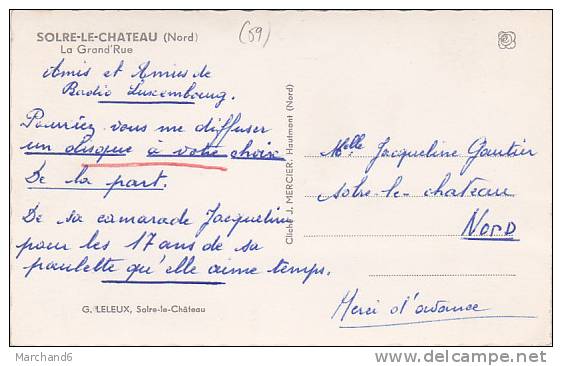 SOLRE-LE-CHATEAU (Nord)
La Grand'Rue
(59)
Amis et Amies de
Radio Luxembourg.
Pourriez vous me diffuser
un disque à votre choix
De la part.
De sa camarade Jacqueline
pour les 17 ans de sa
paulette qu'elle aime temps.
G. LELEUX, Solre-le-Château
Cliché J. MERCIER, Hautmont (Nord)
Melle Jacqueline Gautier
Solre-le-chateau
NORD
Merci d'avance
Marchand6
http://www.delcampe.net